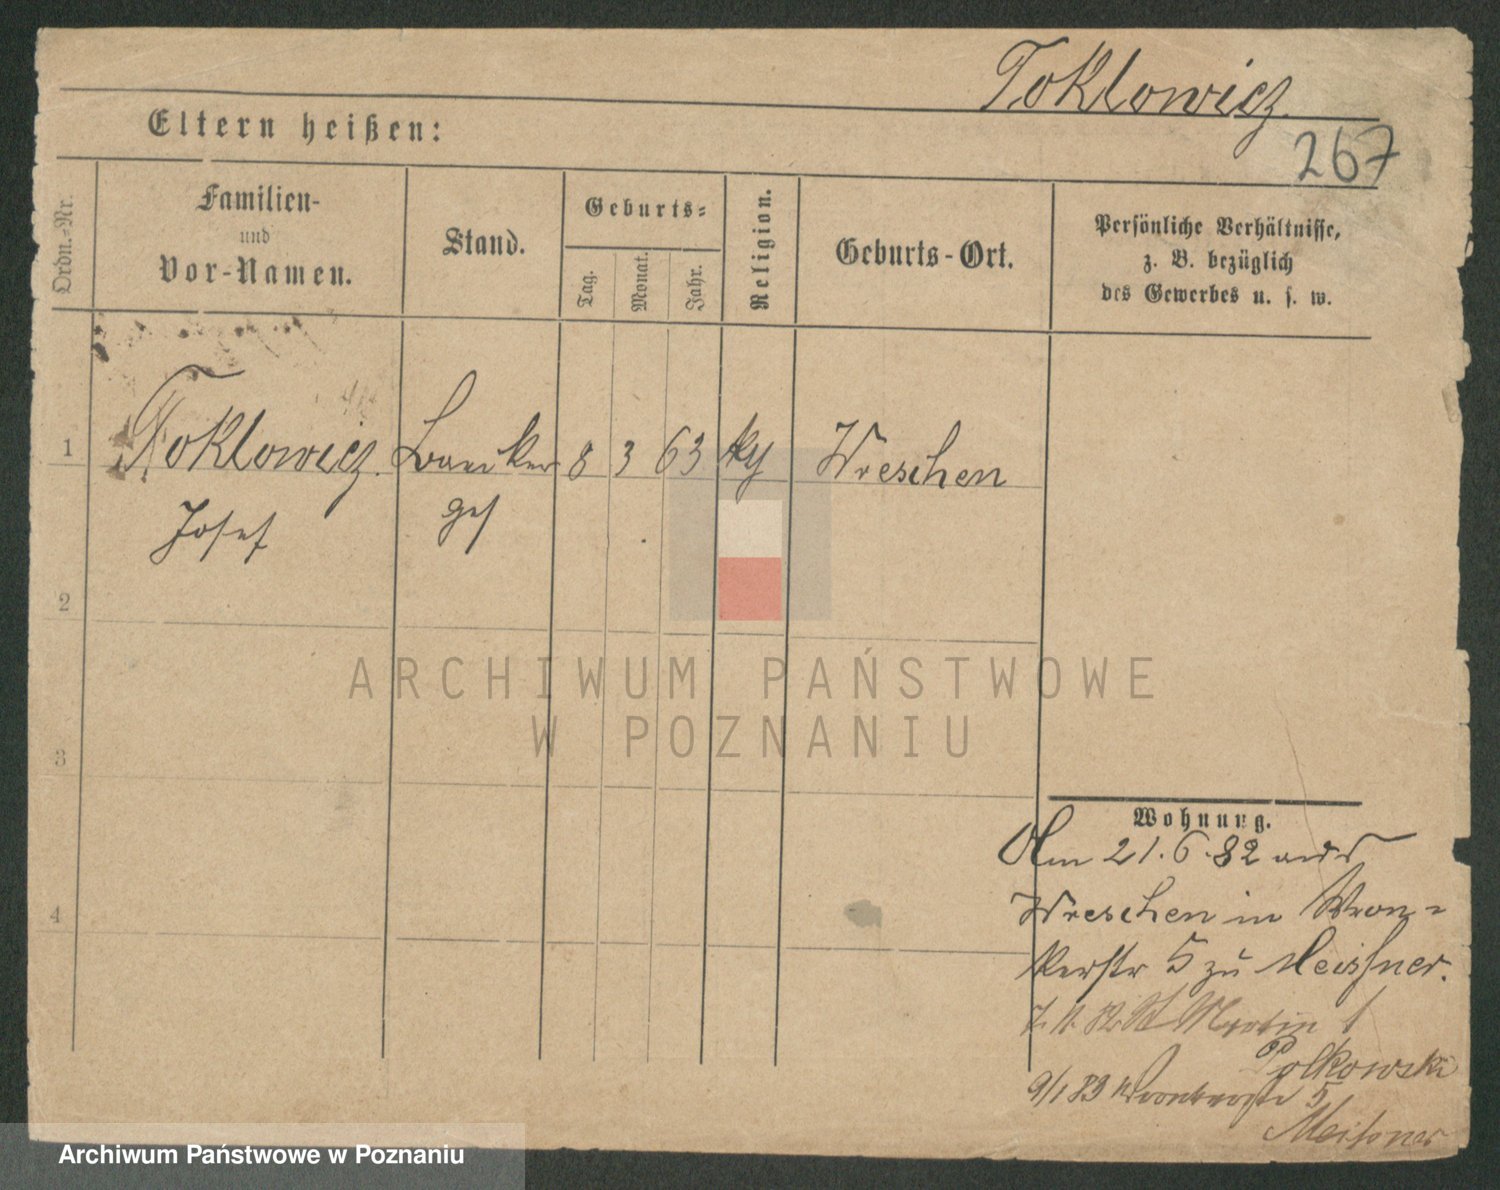 Toklowicz.
267
Eltern heißen:
Ordn.-Nr.
Familien-
und
Vor-Namen.
Stand.
Geburts-
Tag.
Monat.
Jahr.
Religion.
Geburts-Ort.
Persönliche Verhältnisse,
z. B. bezüglich
des Gewerbes u. s. w.
1
Toklowicz.
Josef
ges
8 3 63
Wreschen
2
ARCHIWUM PAŃSTWOWE
W POZNANIU
3
Wohnung.
Am 21.6.82 aus
Wreschen in Wron-
kerstr 5 zu Meißner.
4
St Martin
Polkowski
9/1 83 5
Meißner
Archiwum Państwowe w Poznaniu